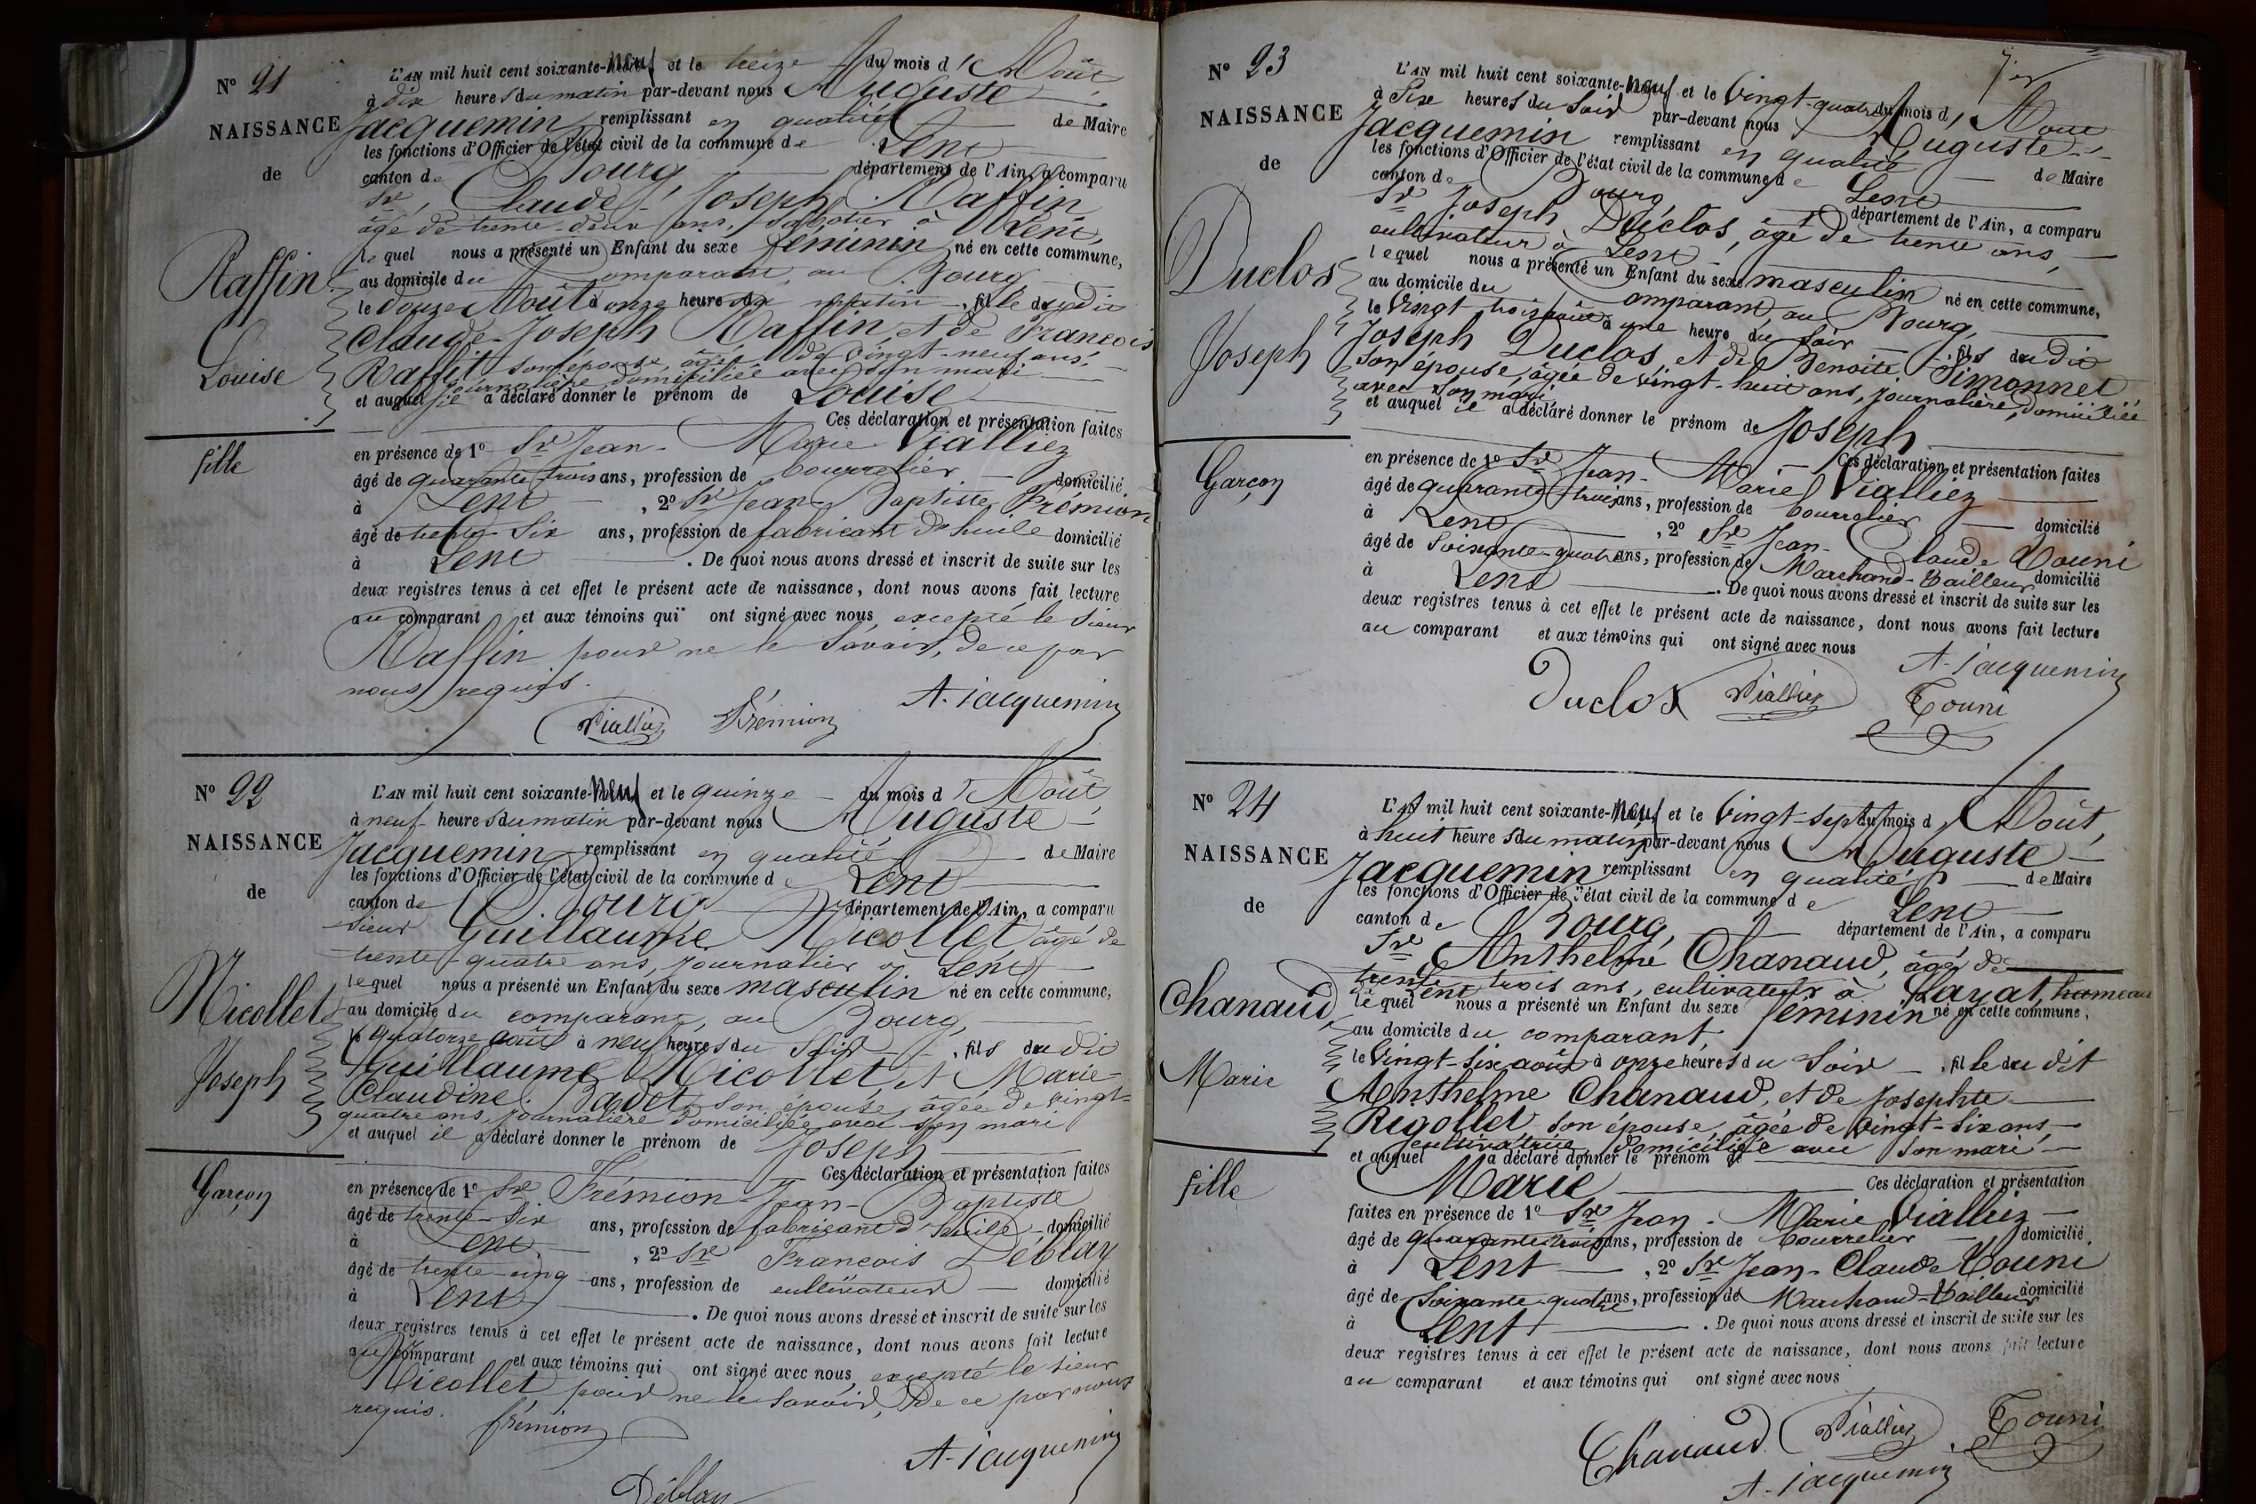 N° 21
NAISSANCE
de
Raffin
Louise
fille
L'AN mil huit cent soixante-neuf et le treize du mois d'Août
à dix heures du matin par-devant nous Auguste
Jacquemin remplissant en qualité de Maire
les fonctions d'Officier de l'état civil de la commune de Lent
canton de Bourg, département de l'Ain, a comparu
Sr, Claude-Joseph Raffin
âgé de trente-deux ans, sabotier à Lent,
lequel nous a présenté un Enfant du sexe féminin né en cette commune,
au domicile du comparant, au Bourg
le douze Août à onze heures du matin, fille du dit
Claude-Joseph Raffin, et de François
Raffit son épouse, âgée de vingt-neuf ans,
journalière domiciliée avec son mari
et auquel il a déclaré donner le prénom de Louise
Ces déclaration et présentation faites
en présence de 1° Sr Jean-Marie Vialliez
âgé de quarante-trois ans, profession de bourrelier domicilié
à Lent, 2° Sr Jean Baptiste Frémion
âgé de trente-six ans, profession de fabricant d'huile domicilié
à Lent. De quoi nous avons dressé et inscrit de suite sur les
deux registres tenus à cet effet le présent acte de naissance, dont nous avons fait lecture
au comparant et aux témoins qui ont signé avec nous, excepté le sieur
Raffin pour ne le savoir, de ce par
nous requis.
Viallier Frémion A. Jacquemin
N° 22
NAISSANCE
de
Nicollet
Joseph
Garçon
L'AN mil huit cent soixante-neuf et le quinze du mois d'Août,
à neuf heures du matin par-devant nous Auguste
Jacquemin remplissant en qualité de Maire
les fonctions d'Officier de l'état civil de la commune d Lent
canton de Bourg département de l'Ain, a comparu
sieur Guillaume Nicollet âgé de
trente-quatre ans, journalier à Lent
lequel nous a présenté un Enfant du sexe masculin né en cette commune,
au domicile du comparant, au Bourg,
le quatorze août à neuf heures du soir, fils du dit
Guillaume Nicollet, et Marie-
Claudine Badot son épouse, âgée de vingt-
quatre ans, journalière domiciliée avec son mari
et auquel il a déclaré donner le prénom de Joseph
Ces déclaration et présentation faites
en présence de 1° Sr Frémion Jean-Baptiste
âgé de trente-six ans, profession de fabricant d'huile domicilié
à Lent, 2° Sr François Déblay
âgé de trente-cinq ans, profession de cultivateur domicilié
à Lent. De quoi nous avons dressé et inscrit de suite sur les
deux registres tenus à cet effet le présent acte de naissance, dont nous avons fait lecture
au comparant et aux témoins qui ont signé avec nous, excepté le sieur
Nicollet pour ne le savoir, de ce par nous
requis. frémion
A. Jacquemin
Déblay
N° 23
NAISSANCE
de
Duclos
Joseph
Garçon
L'AN mil huit cent soixante-neuf et le vingt-quatre du mois d'Août
à Six heures du soir par-devant nous Auguste
Jacquemin remplissant en qualité de Maire
les fonctions d'Officier de l'état civil de la commune de Lent
canton de Bourg, département de l'Ain, a comparu
Sr Joseph Duclos, âgé de trente ans,
cultivateur à Lent
lequel nous a présenté un Enfant du sexe masculin né en cette commune,
au domicile du comparant, au Bourg,
le vingt-trois août à une heure du soir, fils du dit
Joseph Duclos, et de Benoite Simonnet
son épouse, âgée de vingt-huit ans, journalière, domiciliée
avec son mari
et auquel il a déclaré donner le prénom de Joseph
Ces déclaration et présentation faites
en présence de 1° Sr Jean-Marie Vialliez
âgé de quarante-trois ans, profession de bourrelier domicilié
à Lent, 2° Sr Jean-Claude Touni
âgé de soixante-quatre ans, profession de Marchand-Tailleur domicilié
à Lent. De quoi nous avons dressé et inscrit de suite sur les
deux registres tenus à cet effet le présent acte de naissance, dont nous avons fait lecture
au comparant et aux témoins qui ont signé avec nous
A. Jacquemin
Duclos Viallier Touni
N° 24
NAISSANCE
de
Chanaud
Marie
fille
L'AN mil huit cent soixante-neuf et le vingt-sept du mois d'Août,
à huit heures du matin par-devant nous Auguste
Jacquemin remplissant en qualité de Maire
les fonctions d'Officier de l'état civil de la commune de Lent
canton de Bourg, département de l'Ain, a comparu
Sr Anthelme Chanaud, âgé de
trente-trois ans, cultivateur à Layat, hameau
de Lent
lequel nous a présenté un Enfant du sexe féminin né en cette commune,
au domicile du comparant,
le vingt-six août à onze heures du soir, fille du dit
Anthelme Chanaud, et de Josephte
Rigollet son épouse, âgée de vingt-six ans,
cultivatrice domiciliée avec son mari
et auquel a déclaré donner le prénom de
Marie Ces déclaration et présentation
faites en présence de 1° Sr Jean-Marie Vialliez
âgé de quarante-trois ans, profession de bourrelier domicilié
à Lent, 2° Sr Jean-Claude Touni
âgé de soixante-quatre ans, profession de Marchand-Tailleur domicilié
à Lent. De quoi nous avons dressé et inscrit de suite sur les
deux registres tenus à cet effet le présent acte de naissance, dont nous avons fait lecture
au comparant et aux témoins qui ont signé avec nous
Chanaud Viallier Touni
A. Jacquemin